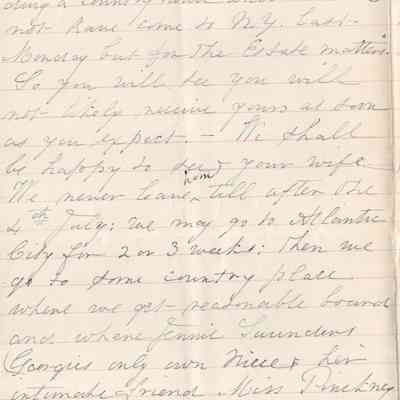 not have come to N.Y. last
Monday but for the Estate matters.
So you will see you will
not likely receive yours as soon
as you expect. – We shall
be happy to see your wife
We never leave home till after the
4th July; we may go to Atlantic
City for 2 or 3 weeks; then we
go to some country place
where we get reasonable board
and where Jennie Saunders
(Georgies only own Niece & her
intimate friend Miss Pinckney